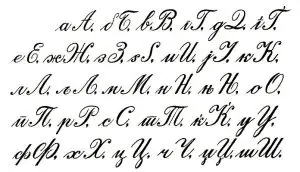 аА. бБ. вВ. гГ. дД. ѓЃ.
еЕ. жЖ. зЗ. ѕЅ. иИ. јЈ. кК.
лЛ. љЉ. мМ. нН. њЊ. оО.
пП. рР. сС. тТ. ќЌ. уУ.
фФ. хХ. цЦ. чЧ. џЏ. шШ.